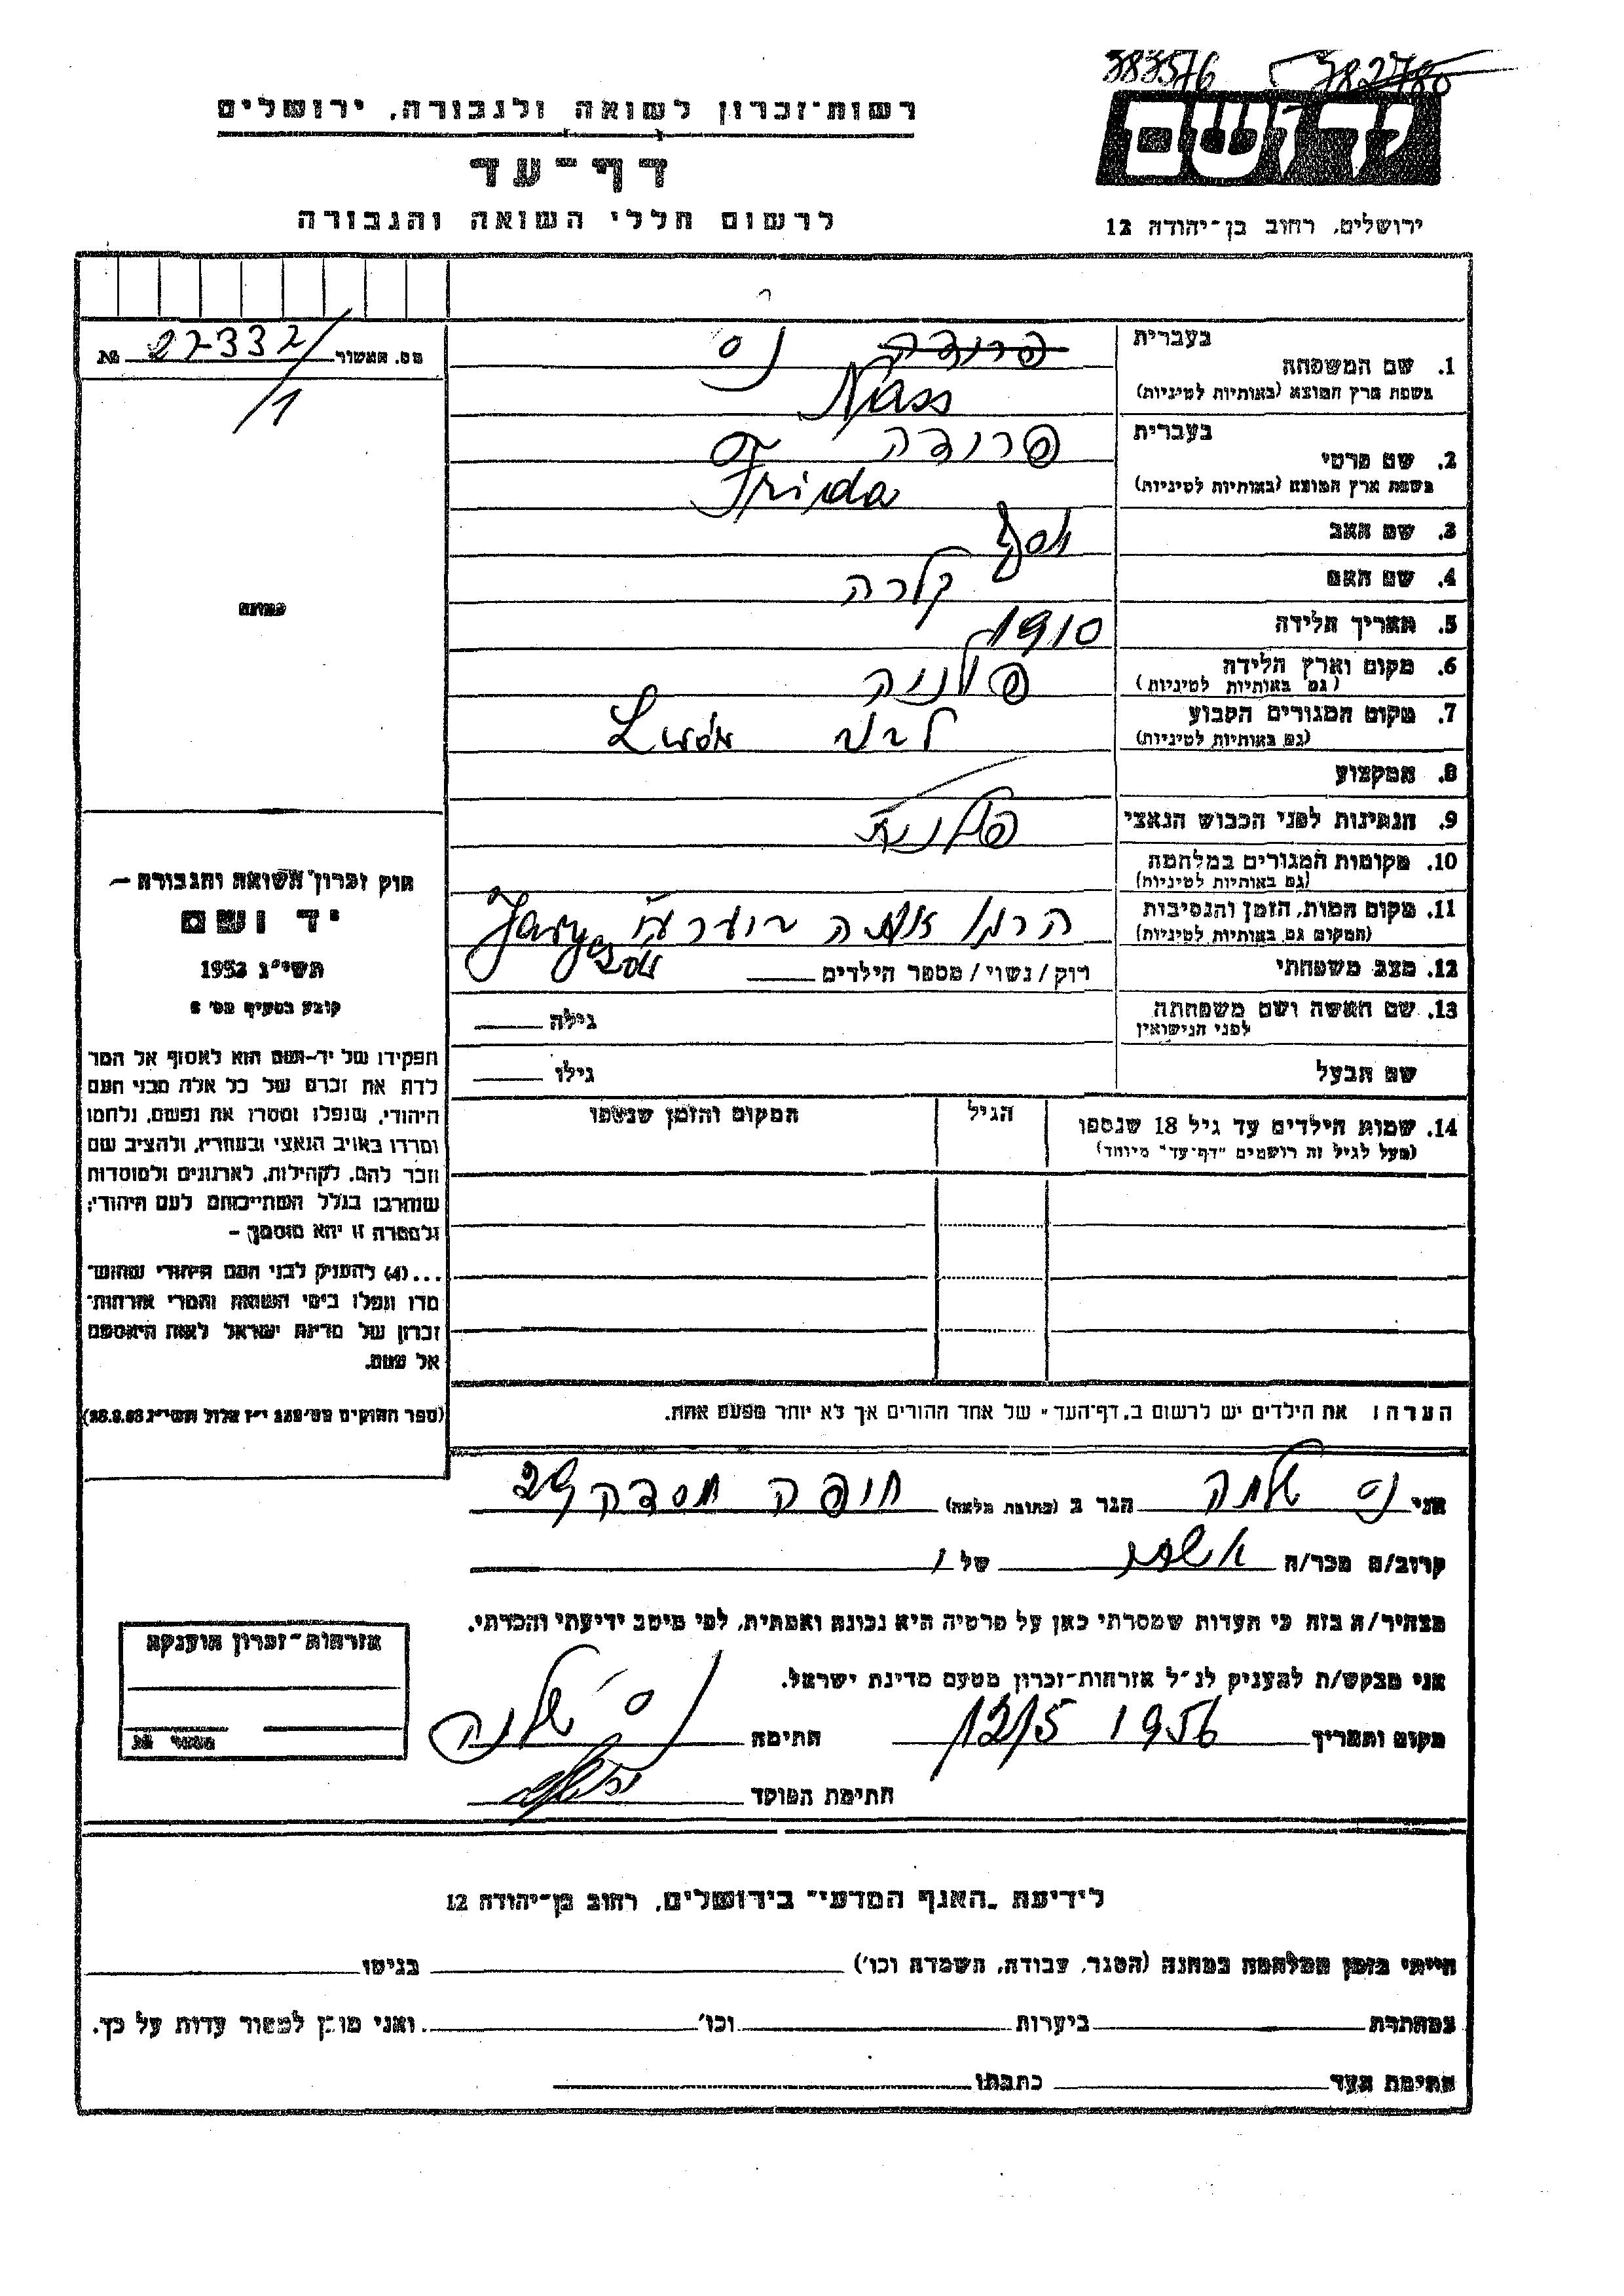 383576 382780
יד ושם
רשות־זכרון לשואה ולגבורה, ירושלים
דף־עד
לרשום חללי השואה והגבורה
ירושלים, רחוב בן־יהודה 12
מס. האשור 27332/1 №
בעברית
1. שם המשפחה פרודה נס
בשפת ארץ המוצא (באותיות לטיניות) Nass
בעברית
2. שם פרטי פרודה
בשפת ארץ המוצא (באותיות לטיניות) Frida
3. שם האב יוסף
4. שם האם קלרה
5. תאריך הלידה 1910
6. מקום וארץ הלידה פולניה
(גם באותיות לטיניות)
7. מקום המגורים הקבוע לבוב Lwów
(גם באותיות לטיניות)
8. המקצוע
9. הנתינות לפני הכבוש הנאצי פולנית
10. מקומות המגורים במלחמה
(גם באותיות לטיניות)
11. מקום המות, הזמן והנסיבות
(המקום גם באותיות לטיניות)
12. מצב משפחתי רוק/נשוי/מספר הילדים
13. שם האשה ושם משפחתה גילה
לפני הנישואין
שם הבעל גילו
14. שמות הילדים עד גיל 18 שנספו הגיל המקום והזמן שנספו
(מעל לגיל זה רושמים "דף־עד" מיוחד)
הערה: את הילדים יש לרשום ב„דף־העד" של אחד ההורים אך לא יותר מפעם אחת.
תמונה
חוק זכרון השואה והגבורה —
יד ושם
תשי"ג 1953
קובע בסעיף מס' 2
תפקידו של יד־ושם הוא לאסוף אל המו
לדת את זכרם של כל אלה מבני העם
היהודי, שנפלו ומסרו את נפשם, נלחמו
ומרדו באויב הנאצי ובעוזריו, ולהציב שם
וזכר להם, לקהילות, לארגונים ולמוסדות
שנחרבו בגלל השתייכותם לעם היהודי;
ולמטרה זו יהא מוסמך —
...(4) להעניק לבני העם היהודי שהוש־
מדו ונפלו בימי השואה והמרי אזרחות־
זכרון של מדינת ישראל לאות היאספם
אל עמם.
אני נס הגר ב (כתובת מלאה) חיפה 29
קרוב/ה מכר/ה של
מצהיר/ה בזה כי העדות שמסרתי כאן על פרטיה היא נכונה ואמתית, לפי מיטב ידיעתי והכרתי.
אני מבקש/ת להעניק לנ"ל אזרחות־זכרון מטעם מדינת ישראל.
מקום ותאריך 12/5 1956 חתימה נס
חתימת הפוקד
אזרחות־זכרון הוענקה
מספר №
לידיעת „האגף המדעי" בירושלים, רחוב בן־יהודה 12
הייתי בזמן המלחמה במחנה (הסגר, עבודה, השמדה וכו') בגיטו
במחתרת ביערות וכו' ואני מוכן למסור עדות על כך.
חתימת העד כתבתו